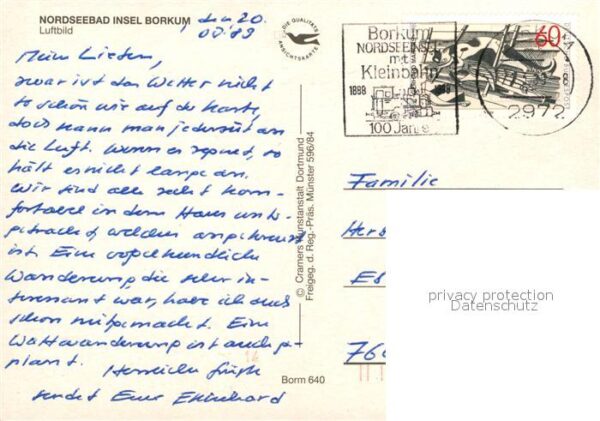 NORDSEEBAD INSEL BORKUM
Luftbild
, den 20.
09.89
Meine Lieben,
zwar ist das Wetter nicht
so schön wie auf der Karte,
doch kann man jederzeit an
die Luft. Wenn es regnet, so
hält es nicht lange an.
Wir sind alle recht kom-
fortabel in dem Haus unter-
gebracht, welches angekreuzt
ist. Eine vogelkundliche
Wanderung, die sehr in-
teressant war, habe ich auch
schon mitgemacht. Eine
Wattwanderung ist auch ge-
plant. Herzliche Grüße
sendet Euer Ekkehard
DIE QUALITÄTS
ANSICHTSKARTE
© Cramers Kunstanstalt Dortmund
Freigeg. d. Reg.-Präs. Münster 596/84
Borm 640
Borkum
NORDSEEINSEL
mit
Kleinbahn
1888 1988
100 Jahre
60
2972
Familie
Herb
Es
760
privacy protection
Datenschutz